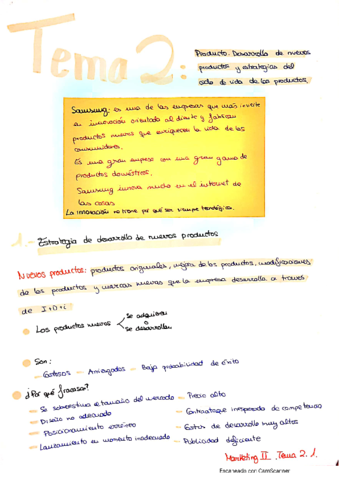 Tema 2:
Producto: Desarrollo de nuevos
productos y estrategias del
ciclo de vida de los productos.
Samsung: es una de las empresas que más invierte
a innovación orientada al cliente y fabrican
productos nuevos que enriquecen la vida de los
consumidores.
Es una gran empresa con una gran gama de
productos domésticos.
Samsung innova mucho en el Internet de
las cosas
La innovación no tiene por qué ser siempre tecnológica.
1.- Estrategia de desarrollo de nuevos productos
Nuevos productos: productos originales, mejora de los productos, modificaciones
de los productos y marcas nuevas que la empresa desarrolla a través
de I+D+i
Los productos nuevos
se adquieren
o
se desarrollan
Son:
- Costosos - Arriesgados - Baja probabilidad de éxito
¿Por qué fracasa?
- Se sobreestima el tamaño del mercado - Precio alto
- Diseño no adecuado - Contraataque inesperado de competencia
- Posicionamiento erróneo - Costos de desarrollo muy altos
- Lanzamiento en momento inadecuado - Publicidad deficiente
Marketing II Tema 2. 1.
Escaneado con CamScanner